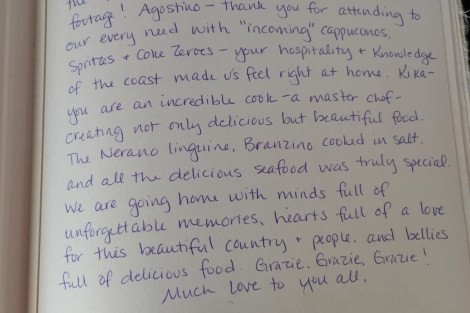 the
footage! Agostino - thank you for attending to
our every need with "incoming" cappucinos,
Spritzs + Coke Zeroes - your hospitality + Knowledge
of the coast made us feel right at home. Kika-
you are an incredible cook - a master chef-
creating not only delicious but beautiful food.
The Nerano linguine, Branzino cooked in salt,
and all the delicious seafood was truly special.
We are going home with minds full of
unforgettable memories, hearts full of a love
for this beautiful country + people, and bellies
full of delicious food. Grazie, Grazie, Grazie!
Much Love to you all,